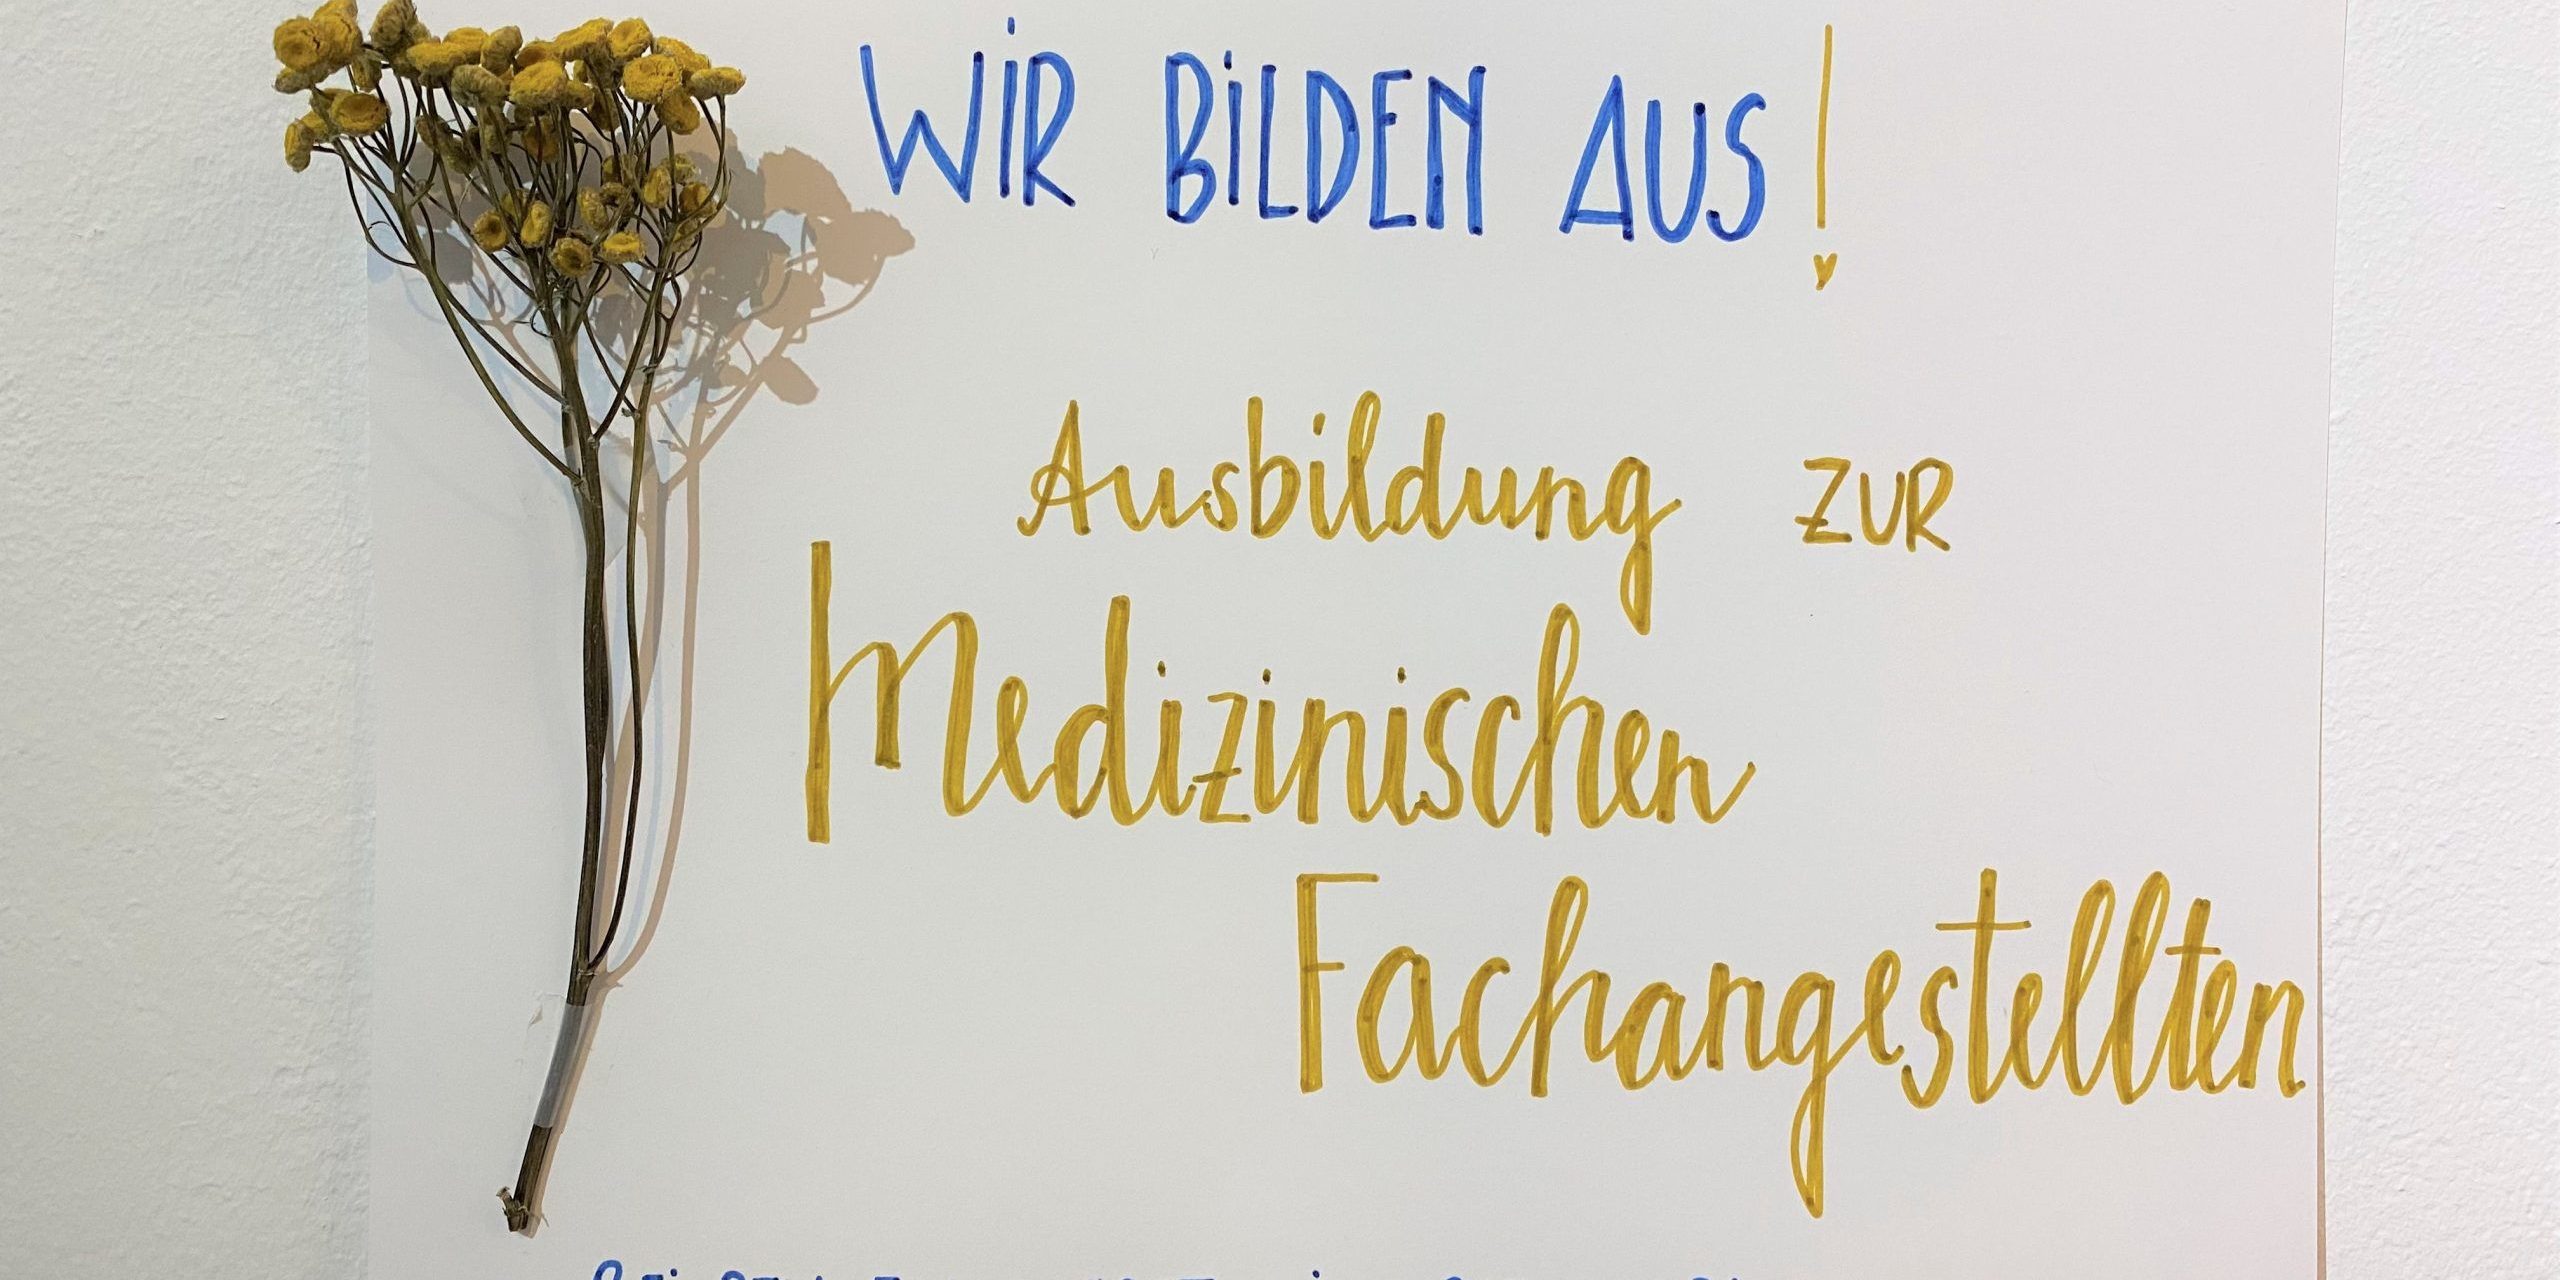 WiR BiLDEN AUS!
Ausbildung ZUR
Medizinischen
Fachangestellten